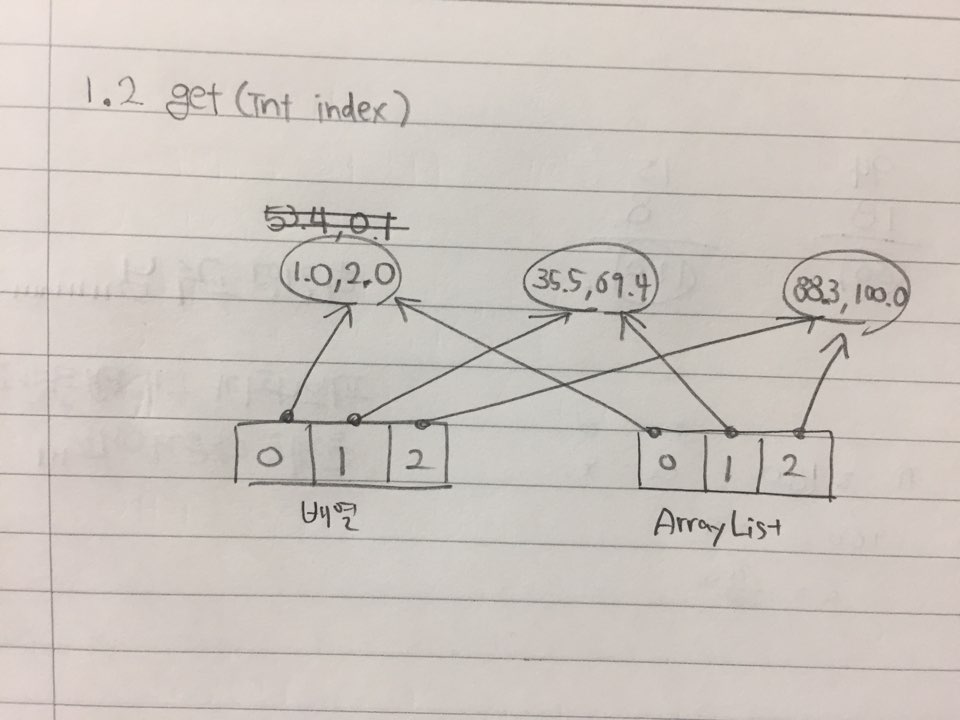 1.2 get(Int index)
53.4,0.1
1.0,2.0 35.5,69.4 88.3,100.0
0 1 2 0 1 2
배열 ArrayList